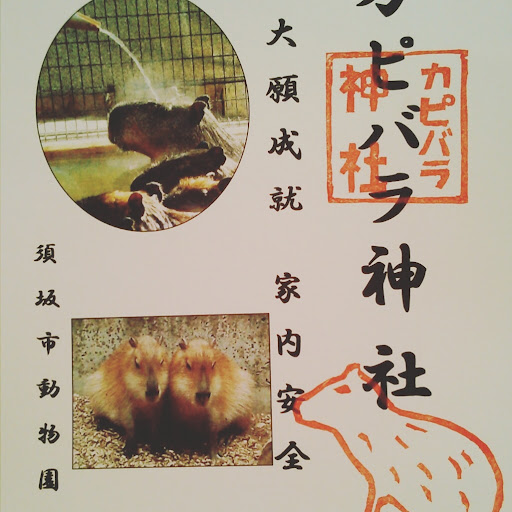 カピバラ神社
カピバラ
神社
大願成就 家内安全
須坂市動物園